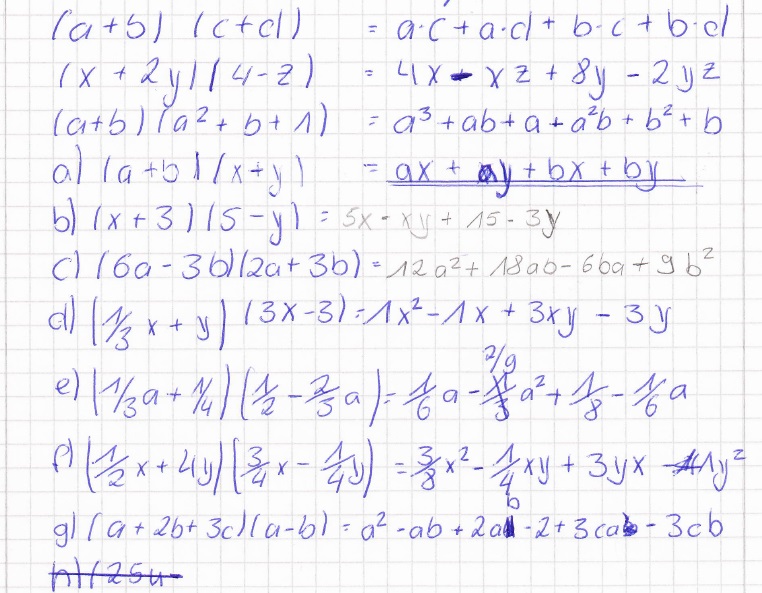 (a+b) (c+d) = a·c + a·d + b·c + b·d
(x + 2y) (4-z) = 4x - xz + 8y - 2yz
(a+b) (a² + b + 1) = a³ + ab + a + a²b + b² + b
a) (a+b) (x+y) = ax + ay + bx + by
b) (x+3) (5-y) = 5x - xy + 15 - 3y
c) (6a - 3b)(2a + 3b) = 12a² + 18ab - 6ba + 9b²
d) (1/3 x + y) (3x-3) = 1x² - 1x + 3xy - 3y
e) (1/3a + 1/4) (1/2 - 2/3a) = 1/6a - 2/9 a² + 1/8 - 1/6a
f) (1/2x + 4y) (3/4x - 1/4y) = 3/8x² - 1/4xy + 3yx - 1y²
g) (a + 2b + 3c)(a-b) = a² - ab + 2ab - 2 + 3ca - 3cb
h) (25u-